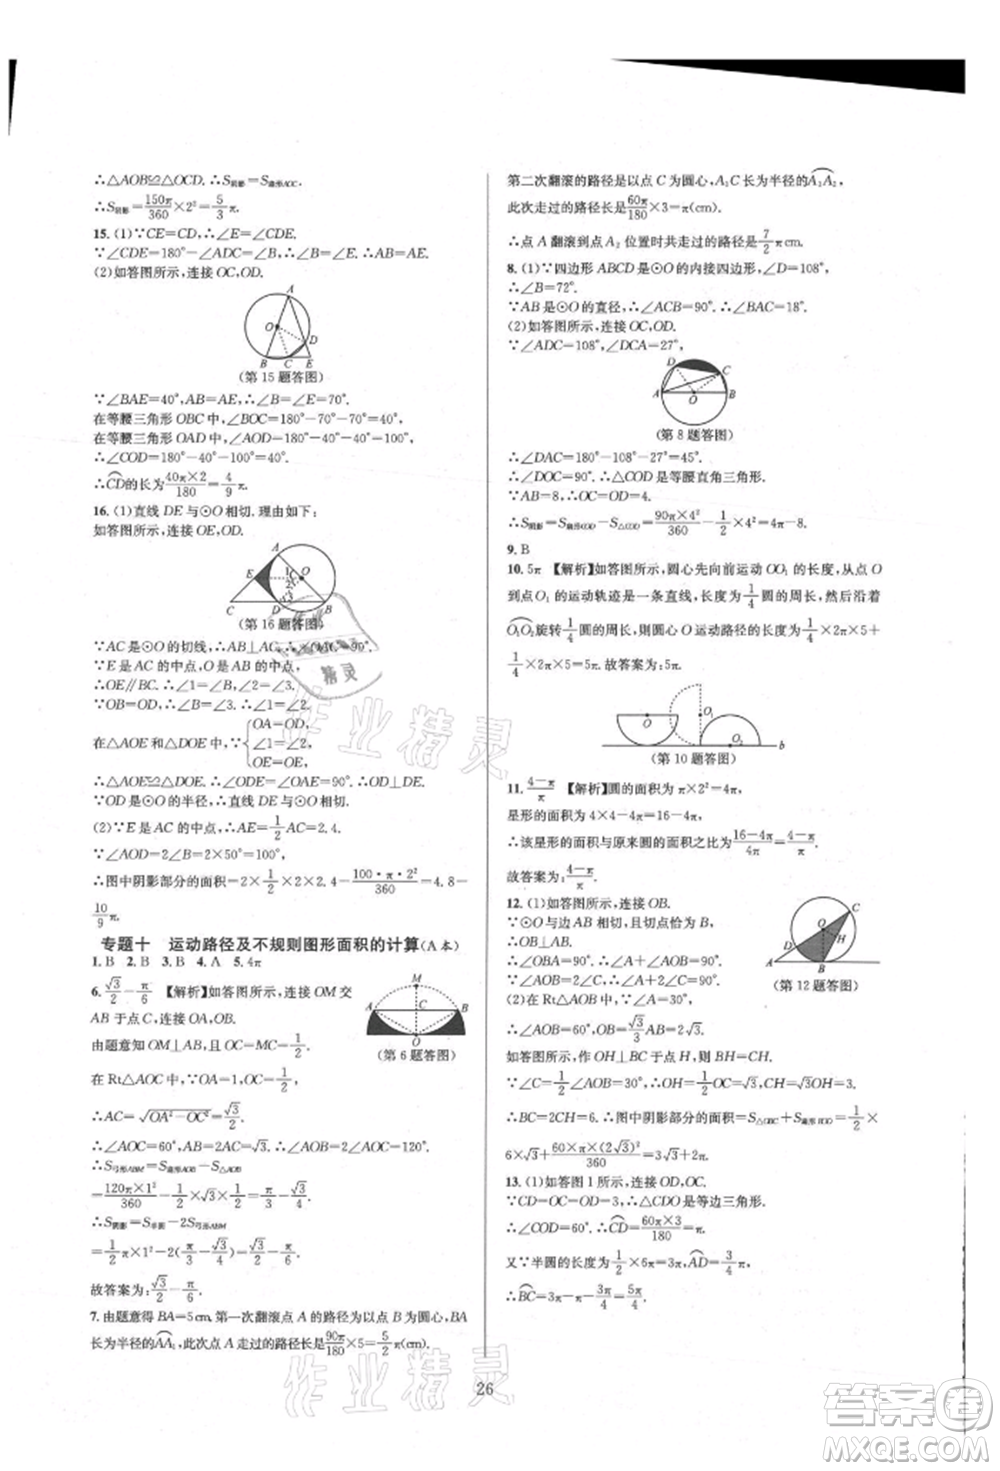 ∴△AOB≌△OCD. ∴S阴影=S扇形AOC.
∴S阴影=150π/360×2²=5/3π.
15. (1)∵CE=CD,∴∠E=∠CDE.
∵∠CDE=180°-∠ADC=∠ABE,∴∠E=∠ABE.
(2)如答图所示,连接OC,OD.
(第15题答图)
∵∠BAE=40°,AB=AE,∴∠ABE=∠E=70°.
在等腰三角形OBC中,∠BOC=180°-70°-70°=40°.
在等腰三角形OAD中,∠AOD=180°-40°-40°=100°.
∴∠COD=180°-40°-100°=40°.
∴CD的长为40π×2/180=4/9π.
16. (1)直线DE与⊙O相切.理由如下:
如答图所示,连接OE,OD.
(第16题答图)
∵AC是⊙O的切线,∴AB⊥AC.∴∠OAC=90°.
∵E是AC的中点,O是AB的中点,
∴OE∥BC.∴∠1=∠B,∠2=∠3.
∵OB=OD,∴∠B=∠3.∴∠1=∠2.
在△AOE和△DOE中,∵{OA=OD, ∠1=∠2, OE=OE,
∴△AOE≌△DOE.∴∠ODE=∠OAE=90°.∴OD⊥DE.
∵OD是⊙O的半径,∴直线DE与⊙O相切.
(2)∵E是AC的中点,∴AE=1/2AC=2.4.
∵∠AOD=2∠B=2×50°=100°,
∴图中阴影部分的面积=2×1/2×2×2.4-100·π·2²/360=4.8-
10/9π.
专题十 运动路径及不规则图形面积的计算(A本)
1. B 2. B 3. B 4. A 5. 4π
6. √3/2-π/6 【解析】如答图所示,连接OM交
AB于点C,连接OA,OB.
由题意知OM⊥AB,且OC=MC=1/2.
(第6题答图)
在Rt△AOC中,∵OA=1,OC=1/2,
∴AC=√(OA²-OC²)=√3/2.
∴∠AOC=60°,AB=2AC=√3.∴∠AOB=2∠AOC=120°.
∴S弓形ABM=S扇形AOB-S△AOB
=120π×1²/360-1/2×√3×1/2=π/3-√3/4.
∴S阴影=S半圆-2S弓形ABM
=1/2π×1²-2(π/3-√3/4)=√3/2-π/6.
故答案为:√3/2-π/6.
7. 由题意得BA=5cm.第一次翻滚点A的路径为以点B为圆心,BA
长为半径的AA₁,此次点A走过的路径长=90π/180×5=5/2π(cm).
第二次翻滚的路径是以点C为圆心,A₁C长为半径的A₁A₂,
此次走过的路径长=60π/180×3=π(cm)
∴点A翻滚到点A₂位置时共走过的路径为7/2πcm.
8. (1)∵四边形ABCD是⊙O的内接四边形,∠D=108°,
∴∠B=72°.
∵AB是⊙O的直径,∴∠ACB=90°.∴∠BAC=18°.
(2)如答图所示,连接OC,OD.
∵∠ADC=108°,∠DCA=27°,
(第8题答图)
∴∠DAC=180°-108°-27°=45°.
∴∠DOC=90°.∴△COD是等腰直角三角形.
∵AB=8,∴OC=OD=4.
∴S阴影=S扇形COD-S△COD=90π×4²/360-1/2×4²=4π-8.
9. B
10. 5π 【解析】如答图所示,圆心先向前运动OO₁的长度,从点O
到点O₁的运动轨迹是一条直线,长度为1/4圆的周长,然后沿着弧
O₁O₂旋转1/4圆的周长,则圆心O运动路径的长度为1/4×2π×5
+1/4×2π×5=5π.故答案为:5π.
(第10题答图)
11. 4-π/π 【解析】圆的面积为π×2²=4π,
星形的面积为4×4-4π=16-4π,
∴该星形的面积与原来圆的面积之比为16-4π/4π=4-π/π.
故答案为:4-π/π.
12. (1)如答图所示,连接OB.
∵⊙O与边AB相切,且切点恰为点B,
∴OB⊥AB.
∴∠OBA=90°.∴∠A+∠AOB=90°.
∵∠AOB=2∠C,∴∠A+2∠C=90°.
(第12题答图)
(2)在Rt△AOB中,∵∠A=30°,∴∠AOB=60°.
∴∠ABO=90°.∴OB=√3/3AB=2√3.
如答图所示,作OH⊥BC于点H,则BH=CH.
∵∠C=1/2∠AOB=30°,∴OH=1/2OC=√3,CH=√3OH=3.
∴BC=2CH=6.∴图中阴影部分的面积=S△OBC+S扇形BOD=1/2×
6×√3+60×π×(2√3)²/360=3√3+2π.
13. (1)如答图1所示,连接OD,OC.
∵CD=OC=OD=3,∴△CDO是等边三角形.
∴∠COD=60°.∴CD=60π×3/180=π.
又∵半圆的长度为1/2×6π=3π,AD=π/4,
∴BC=3π-π-3π/4=5π/4.
26
作业精灵
作业精灵
精灵
答案圈
MXQE.COM